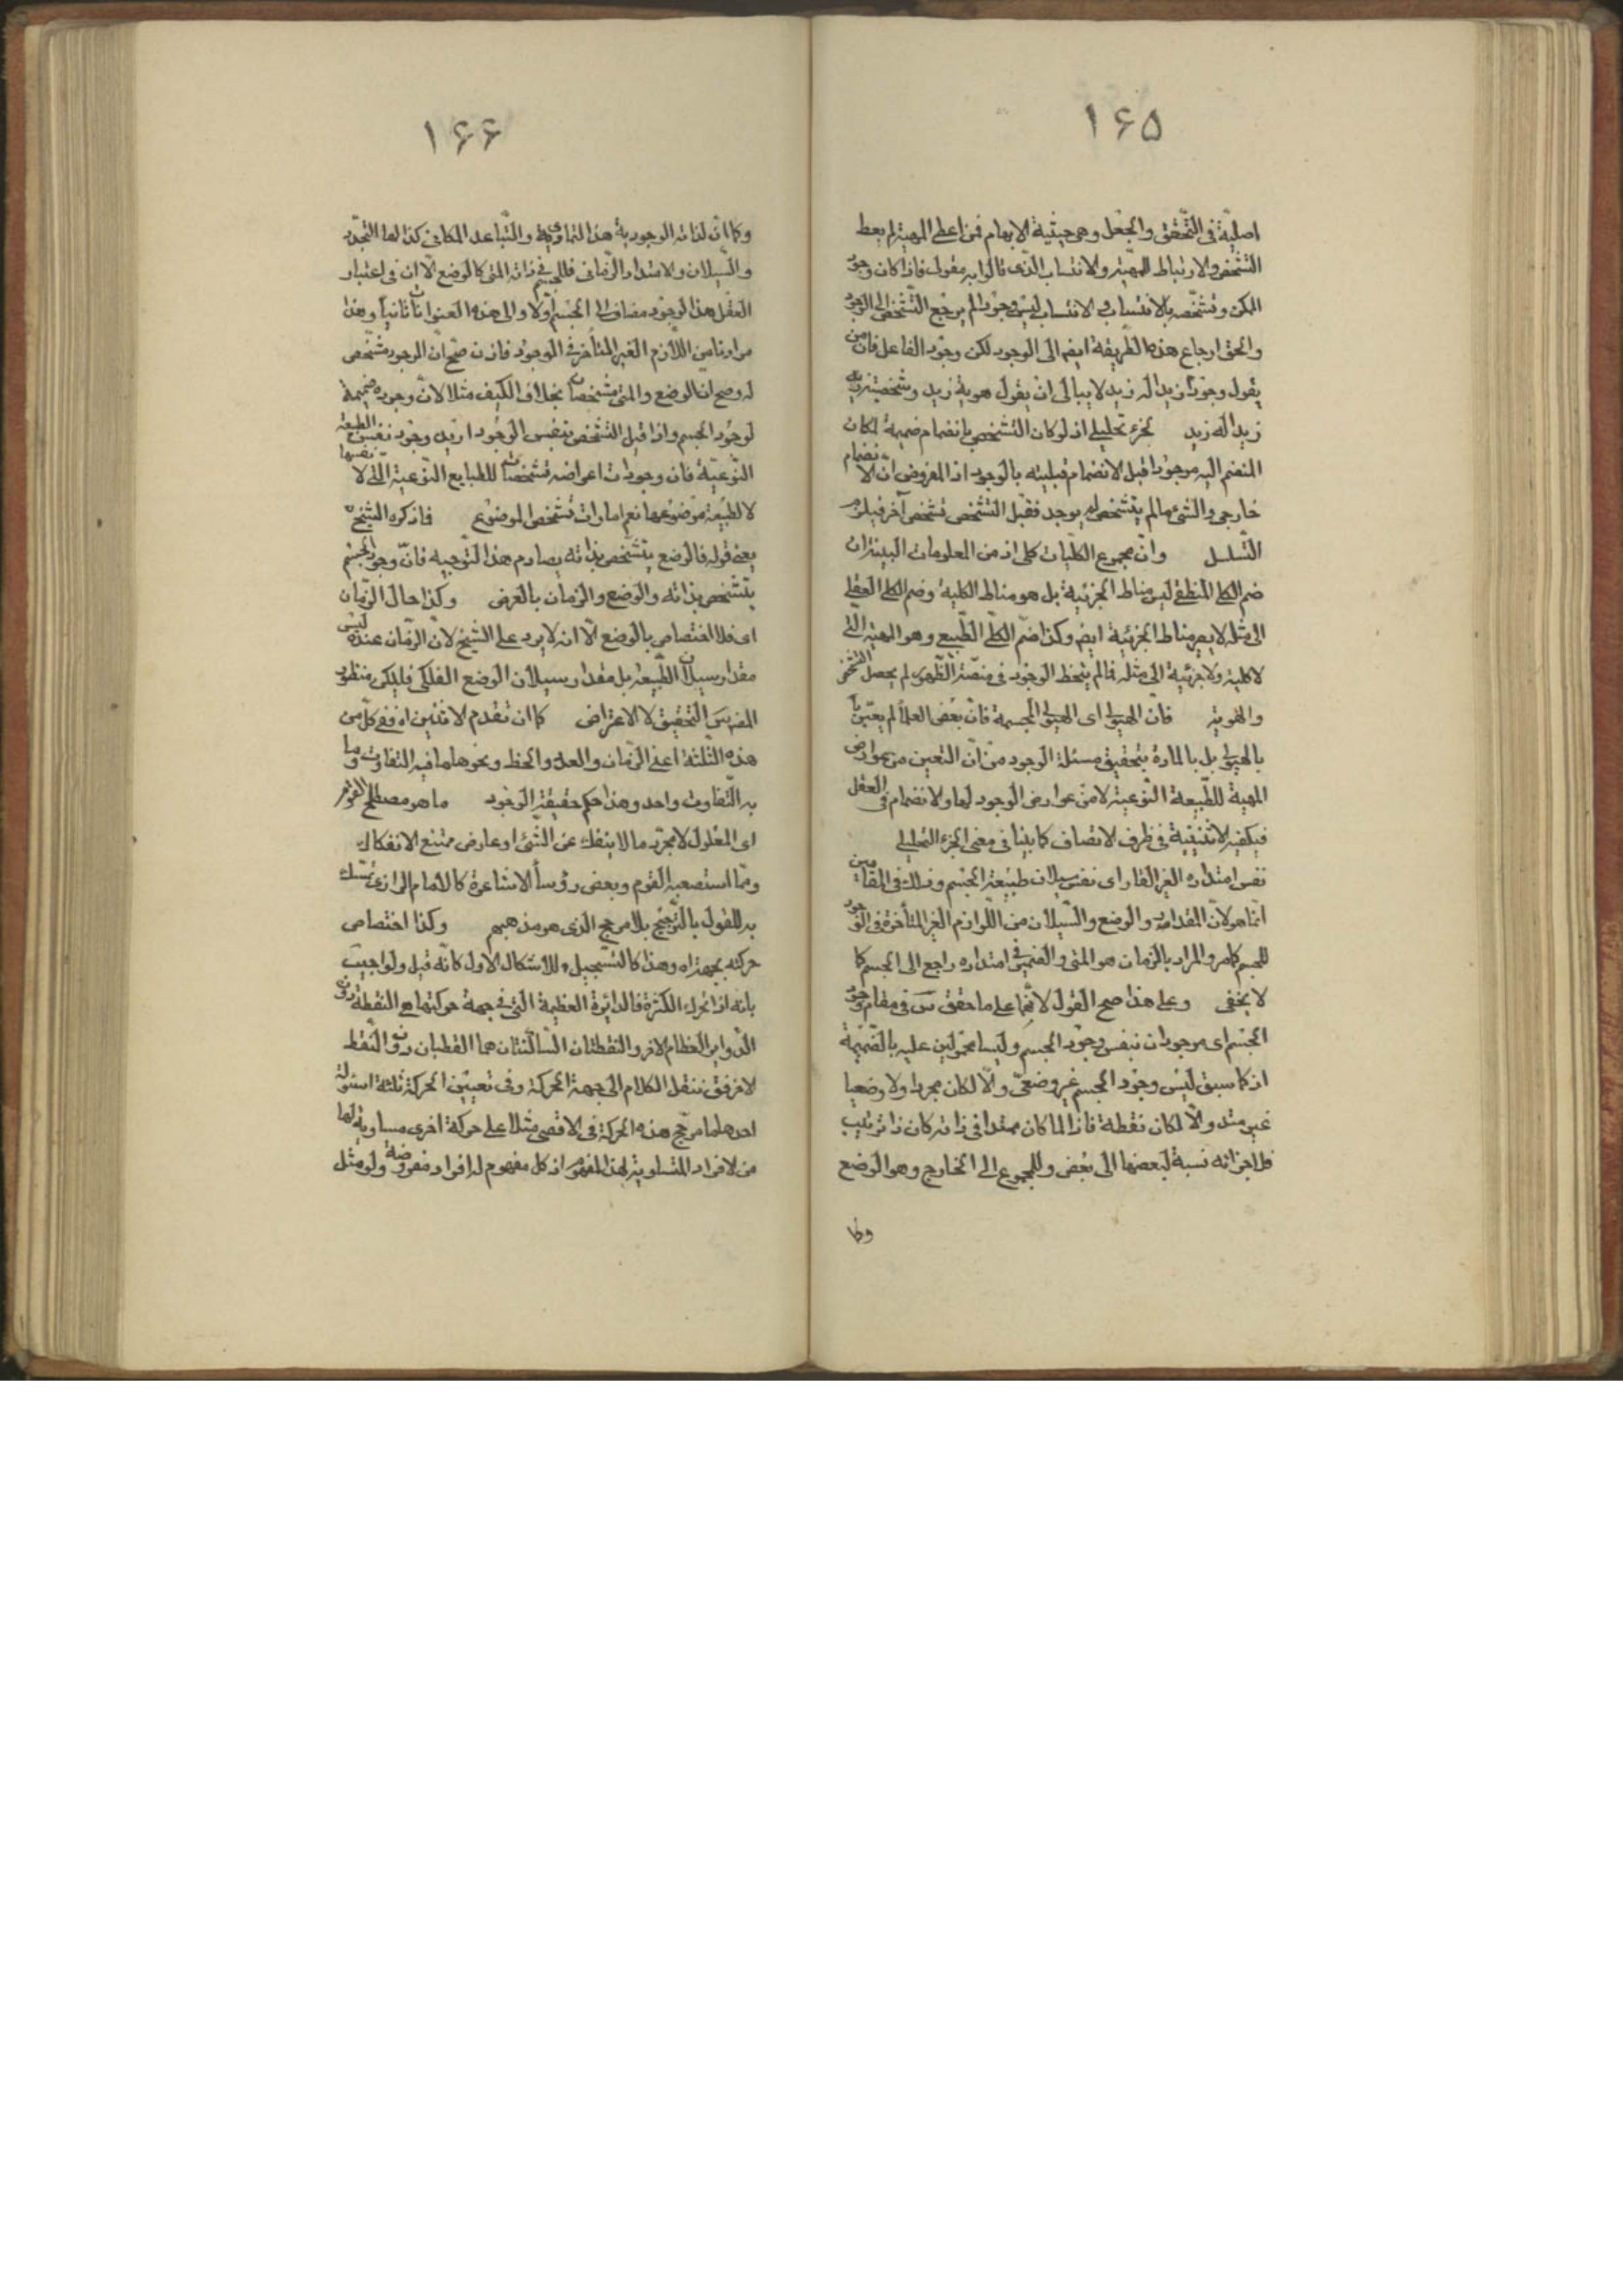 ۱۶۵
اصلية فى التحقق والجعل وهى حيثية الابهام فمن اعطى المهية لم يعط
التشخص والارتباط للمهية والانتساب الذى قالوا به مقولى فاذا كان وجود
الممكن وتشخصه بالانتساب والانتساب ليس وجودا لم يرجع التشخص الى الوجود
والحق ارجاع هذه الطريقة ايضا الى الوجود لكن وجود الفاعل فان من
يقول وجود زيد اله زيد لا يبالى ان يقول هوية زيد وتشخصية زيد
زيد اله زيد كجزء تحليلى اذ لو كان التشخص بانضمام ضميمة لكان
المنضم اليه موجودا قبل الانضمام قبليته بالوجود اذ المفروض ان الانضمام
خارجى والشئ ما لم يتشخص لم يوجد فقبل التشخص تشخص آخر فيلزم
التسلسل وان مجموع الكليات كلى اذ من المعلومات البينة ان
ضم الكلى المنطقى ليس مناط الجزئية بل هو مناط الكلية وضم الكلى العقلى
الى مثله لا يصير مناط الجزئية ايضا وكذا ضم الكلى الطبيعى وهو المهية التى
لا كلية ولا جزئية الى مثله فما لم ينحط الوجود فى منصة الظهور لم يحصل التشخص
والهوية فان الهيولى اى الهيولى المجسمة فان بعض العلماء لم يعتن
بالهيولى بل بالمادة بتحقيق مسئلة الوجود من ان التعين من عوارض
المهية للطبيعة النوعية لا من عوارض الوجود لها والانضمام فى العقل
فيكفيه الاثنينية فى ظرف الاتصاف كما بينا فى معنى الجزء التحليلى
نفس امتداده الغير القار اى نفس سيلان طبيعة الجسم وذلك فى المقامين
انما هو لان المقدار والوضع والسيلان من اللوازم الغير المتأخرة فى الوجود
للجسم كما مر والمراد بالزمان هو المتى والضمير فى امتداده راجع الى الجسم كما
لا يخفى وعلى هذا صح القول لانهما على ما حقق س فى مقام وجود
الجسم اى موجودان بنفس وجود الجسم وليسا محمولين عليه بالضميمة
اذ كما سبق ليس وجود الجسم غير وضعى والا لكان مجردا ولا وضعيا
غير ممتد والا لكان نقطة فاذا لما كان ممتدا فى ذاته كان ذا ترتيب
فلاجزائه نسبة لبعضها الى بعض وللمجموع الى الخارج وهو الوضع
وكما
۱۶۶
وكما ان لذاته الوجودية هذا التمادى والتباعد المكانى كذا لها التجدد
والسيلان والامتداد الزمانى فللجسم فى ذاته المتى كالوضع الا ان فى اعتبار
العقل هذا الوجود مضاف الى الجسم اولا والى هذه العنوانات ثانيا وهذا
مرادنا من اللازم الغير المتأخر فى الوجود فاذن صح ان الوجود مشخص
له وصح ان الوضع والمتى مشخصان بخلاف الكيف مثلا لان وجوده ضميمة
لوجود الجسم واذا قيل التشخص بنفس الوجود اريد وجود نفس الطبيعة
النوعية فان وجودات اعراضه مشخصات للطبايع النوعية التى لا نفسها
لا لطبيعة موضوعها نعم امارات تشخص الموضوع فاذكره الشيخ
يعنى قوله فالوضع يتشخص بذاته يصادم هذا التوجيه فان وجود الجسم
يتشخص بذاته والوضع والزمان بالعرض وكذا حال الزمان
اى فلا اختصاص بالوضع الا انه لا يرد على الشيخ لان الزمان عنده ليس
مقدار سيلان الطبيعة بل مقدار سيلان الوضع الفلكى فليكن منظور
المصنف س التحقيق لا الاعتراض كما ان تقدم الاثنين اه ففى كل من
هذه الثلثة اعنى الزمان والعدد والخط ونحوها ما فيه التفاوت وما
به التفاوت واحد وهذا حكم حقيقة الوجود ما هو مصطلح القوم
اى المعلول لا مجرد ما لا ينفك عن الشئ او عارض ممتنع الانفكاك
ومما استصعبه القوم وبعض رؤساء الاشاعرة كالامام الرازى تمسك
به للقول بالترجيح بلا مرجح الذى هو مذهبهم وكذا اختصاص
حركته بجهة اه وهذا كالتسجيل للاشكال الاول كانه قيل ولو اجيب
بانه اذا تحرك الكرة فالدائرة العظيمة التى فى جهة حركتها هى المنطقة دون
الدواير العظام الاخر والنقطتان الساكنتان هما القطبان دون النقط
الاخر فننقل الكلام الى جهة الحركة وفى تعيين الحركة ثلثة اسئولة
احدها ما مرجح هذه الحركة فى الاقصى مثلا على حركة اخرى مساوية لها
من الافراد المتساوية لهذا المفهوم اذ كل مفهوم له افراد مفروضة ولو مثل